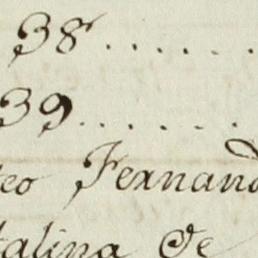 38......
39......
eo Fernand
talina de